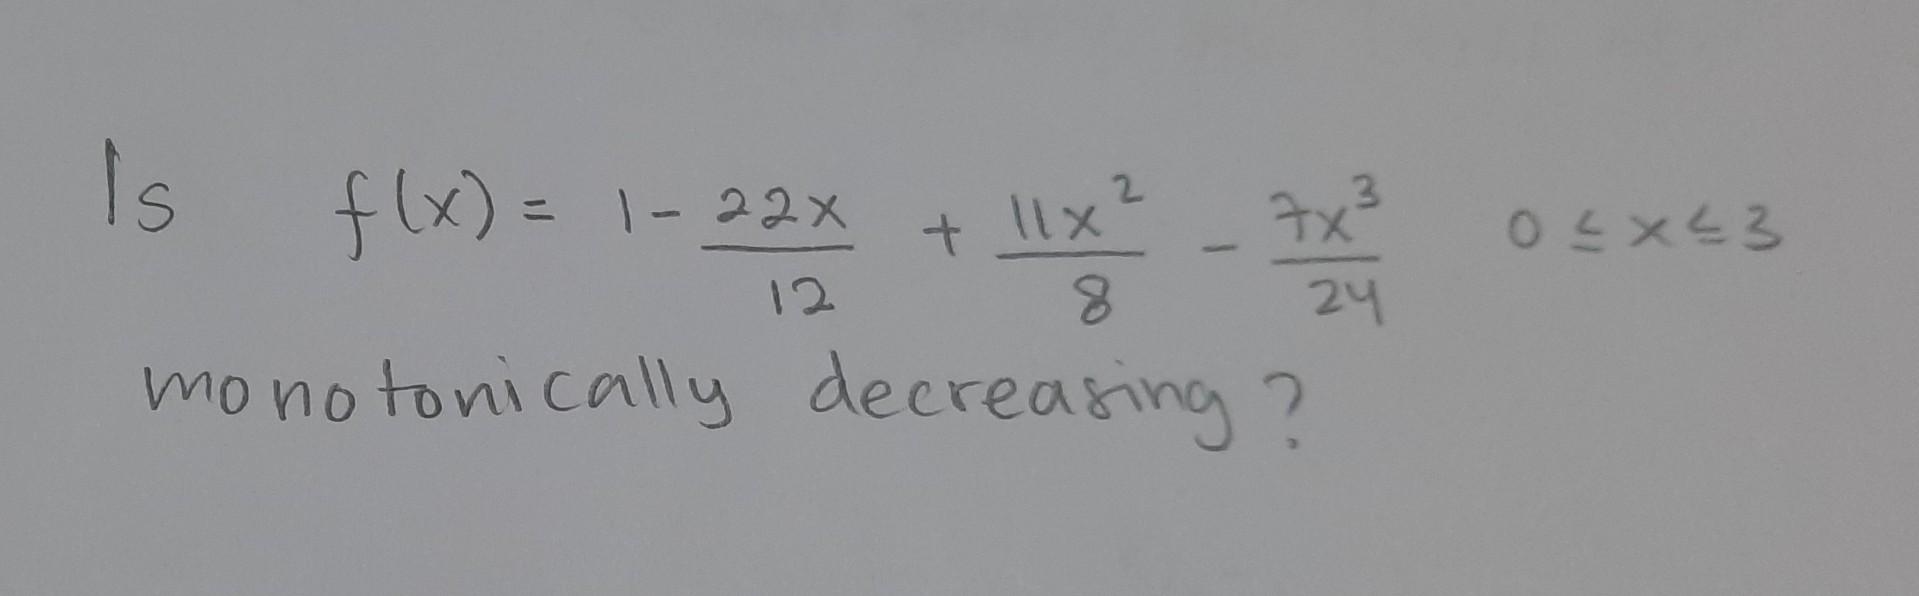 Is f(x) = 1 - 22x/12 + 11x²/8 - 7x³/24 0 ≤ x ≤ 3
monotonically decreasing?